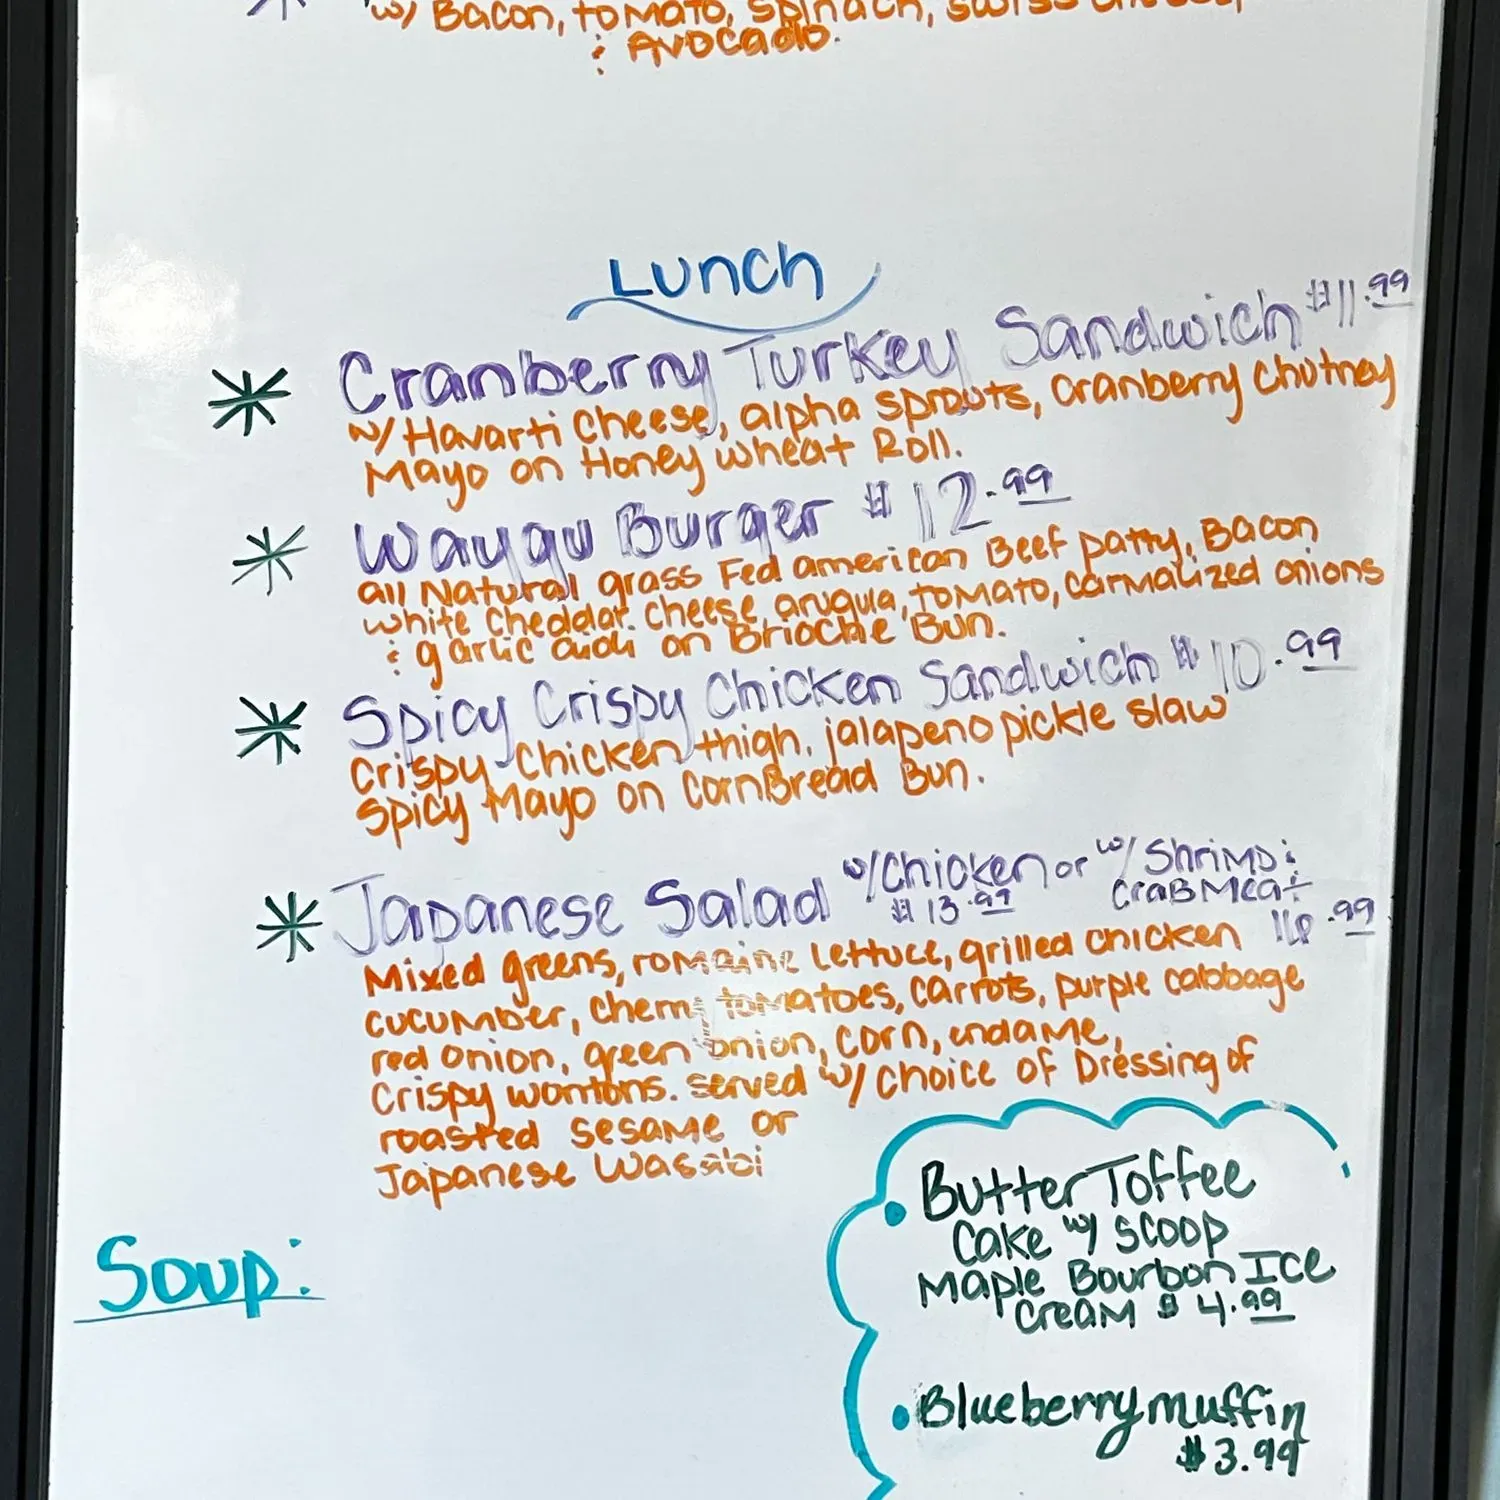 w/ Bacon, tomato, spinach, swiss cheese,
& Avocado.
Lunch
Cranberry Turkey Sandwich $11.99
w/ Havarti cheese, alpha sprouts, cranberry chutney
Mayo on Honey wheat Roll.
Waygu Burger $12.99
all Natural grass Fed american Beef patty, Bacon
white cheddar cheese, arugula, tomato, carmalized onions
& garlic aioli on Brioche Bun.
Spicy Crispy Chicken Sandwich $10.99
crispy chicken thigh, jalapeno pickle slaw
spicy Mayo on CornBread Bun.
Japanese Salad w/Chicken or w/ Shrimp &
$13.99 CraB Meat
16.99
Mixed greens, romaine Lettuce, grilled chicken
cucumber, cherry tomatoes, carrots, purple cabbage
red onion, green onion, corn, endame,
crispy wontons. served w/ choice of Dressing of
roasted sesame or
Japanese Wasabi
Soup:
Butter Toffee
Cake w/ scoop
Maple Bourbon Ice
cream $4.99
Blueberry muffin
$3.99